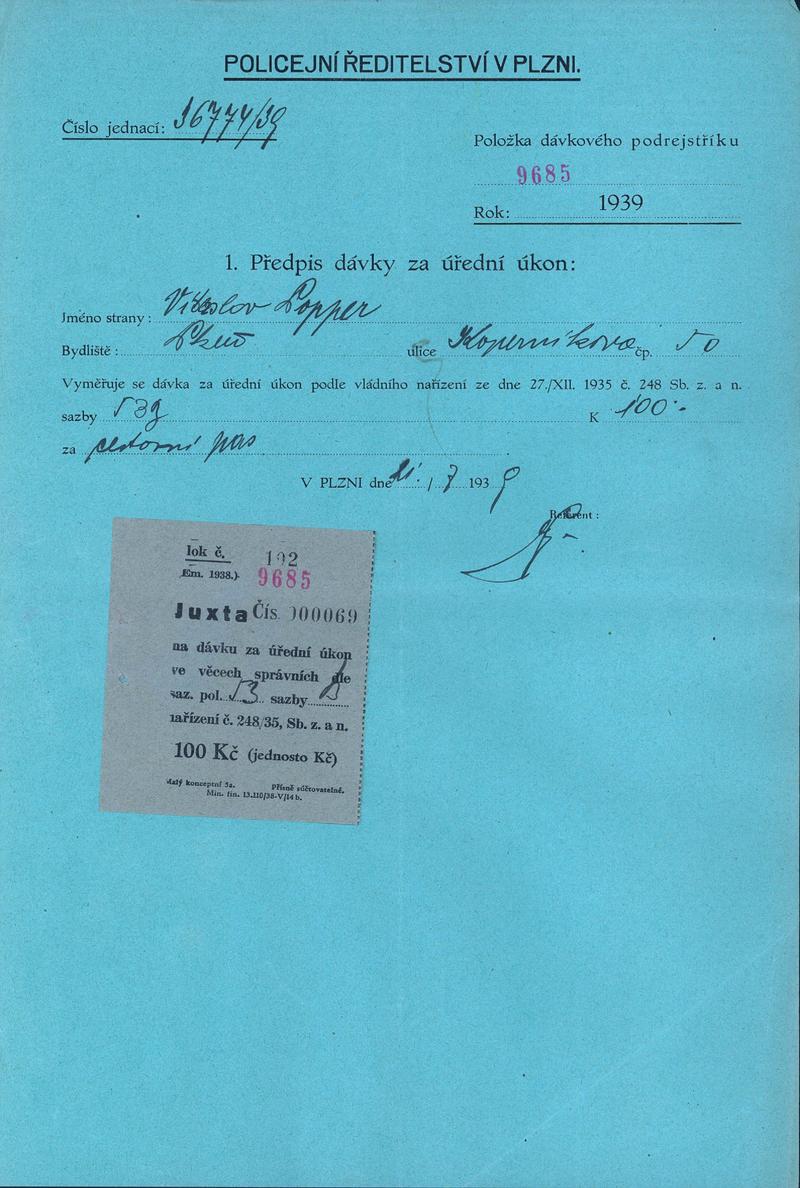 POLICEJNÍ ŘEDITELSTVÍ V PLZNI.
Číslo jednací: 36774/39
Položka dávkového podrejstříku
9685
Rok: 1939
1. Předpis dávky za úřední úkon:
Jméno strany: Vítězslav Popper
Bydliště: Plzeň ulice Koperníkova čp. 50
Vyměřuje se dávka za úřední úkon podle vládního nařízení ze dne 27./XII. 1935 č. 248 Sb. z. a n.
sazby 53g K 100.-
za cestovní pas
V PLZNI dne 21. / 7 1939
Referent:
lok č. 192
Em. 1938.) 9685
Juxta Čís. 000069
na dávku za úřední úkon
ve věcech správních dle
saz. pol. 53 sazby
nařízení č. 248/35, Sb. z. a n.
100 Kč (jednosto Kč)
Malý konceptní 5a. Přísně súčtovatelné.
Min. fin. 13.110/38-V/14 b.